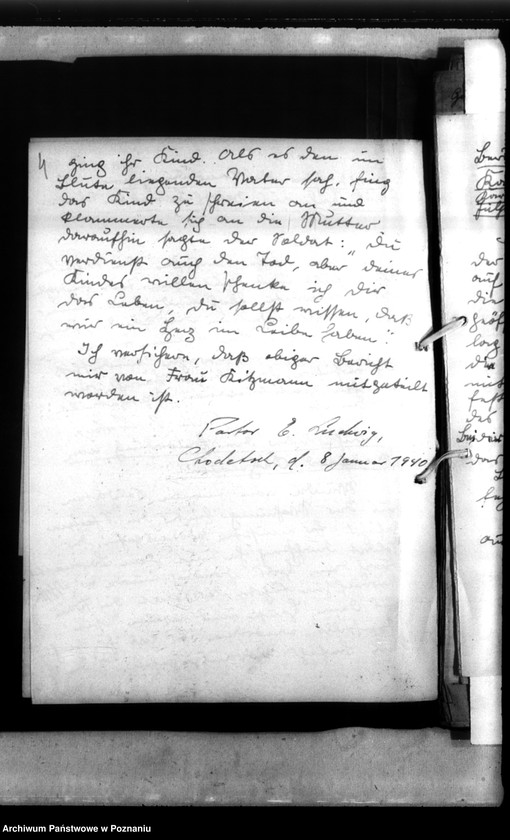 4
ging ihr Kind. Als es den im
Blute liegenden Vater sah, fing
das Kind zu schreien an und
klammerte sich an die Mutter
daraufhin sagte der Soldat: „Du
verdienst auch den Tod, aber deines
Kindes willen schenke ich dir
das Leben, du sollst wissen, daß
wir ein Herz im Leibe haben."
Ich versichere, daß obiger Bericht
mir von Frau Kitzmann mitgeteilt
worden ist.
Pastor E. Ludwig,
Chodetsch, d. 8 Januar 1940
der
auf
die
das
des
Archiwum Państwowe w Poznaniu